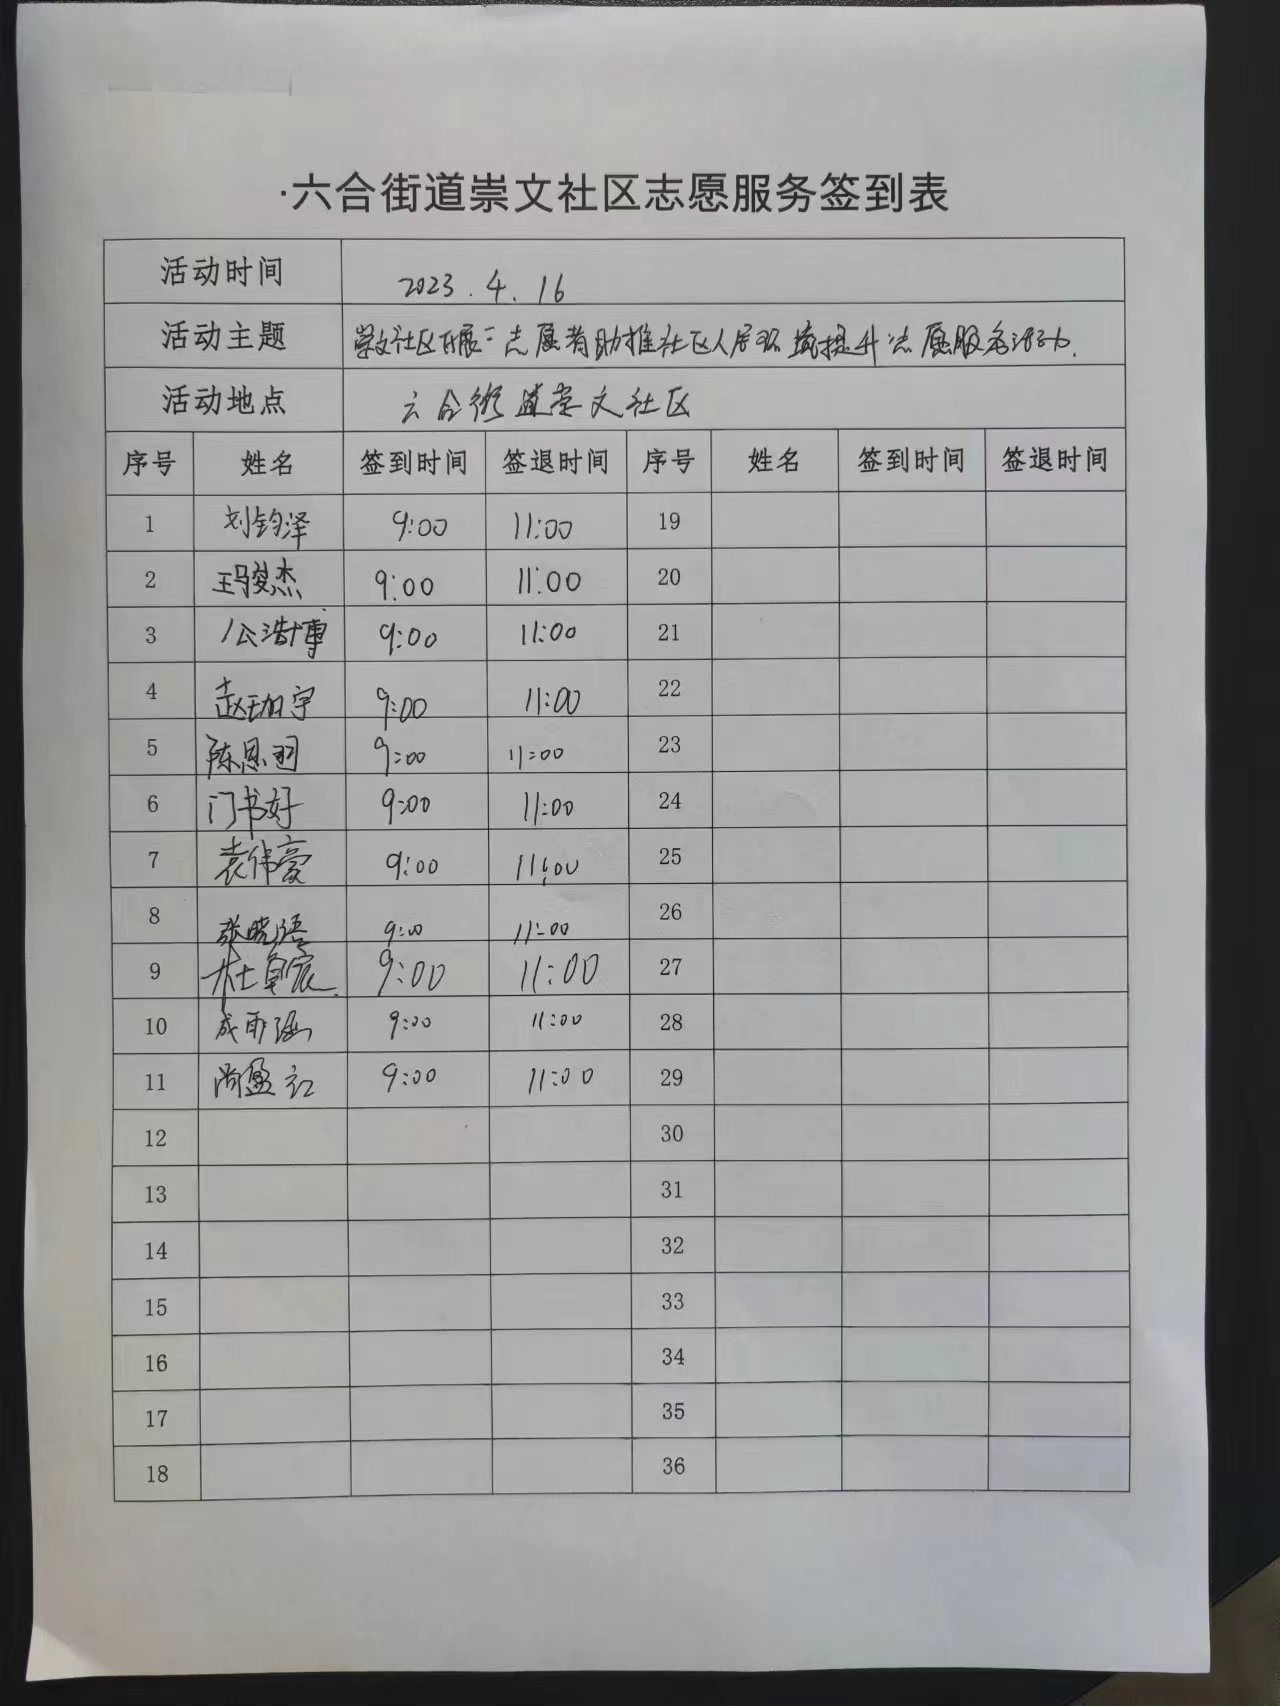 ·六合街道崇文社区志愿服务签到表
活动时间 2023.4.16
活动主题 崇文社区开展 志愿者助推社区人居环境提升志愿服务活动.
活动地点 六合街道崇文社区
序号 姓名 签到时间 签退时间 序号 姓名 签到时间 签退时间
1 刘钧泽 9:00 11:00 19
2 王骏杰 9:00 11:00 20
3 公浩博 9:00 11:00 21
4 赵珈宇 9:00 11:00 22
5 陈思羽 9:00 11:00 23
6 门书好 9:00 11:00 24
7 袁伟豪 9:00 11:00 25
8 张晓语 9:00 11:00 26
9 杜卓宸 9:00 11:00 27
10 成雨涵 9:00 11:00 28
11 尚盈 9:00 11:00 29
12 30
13 31
14 32
15 33
16 34
17 35
18 36